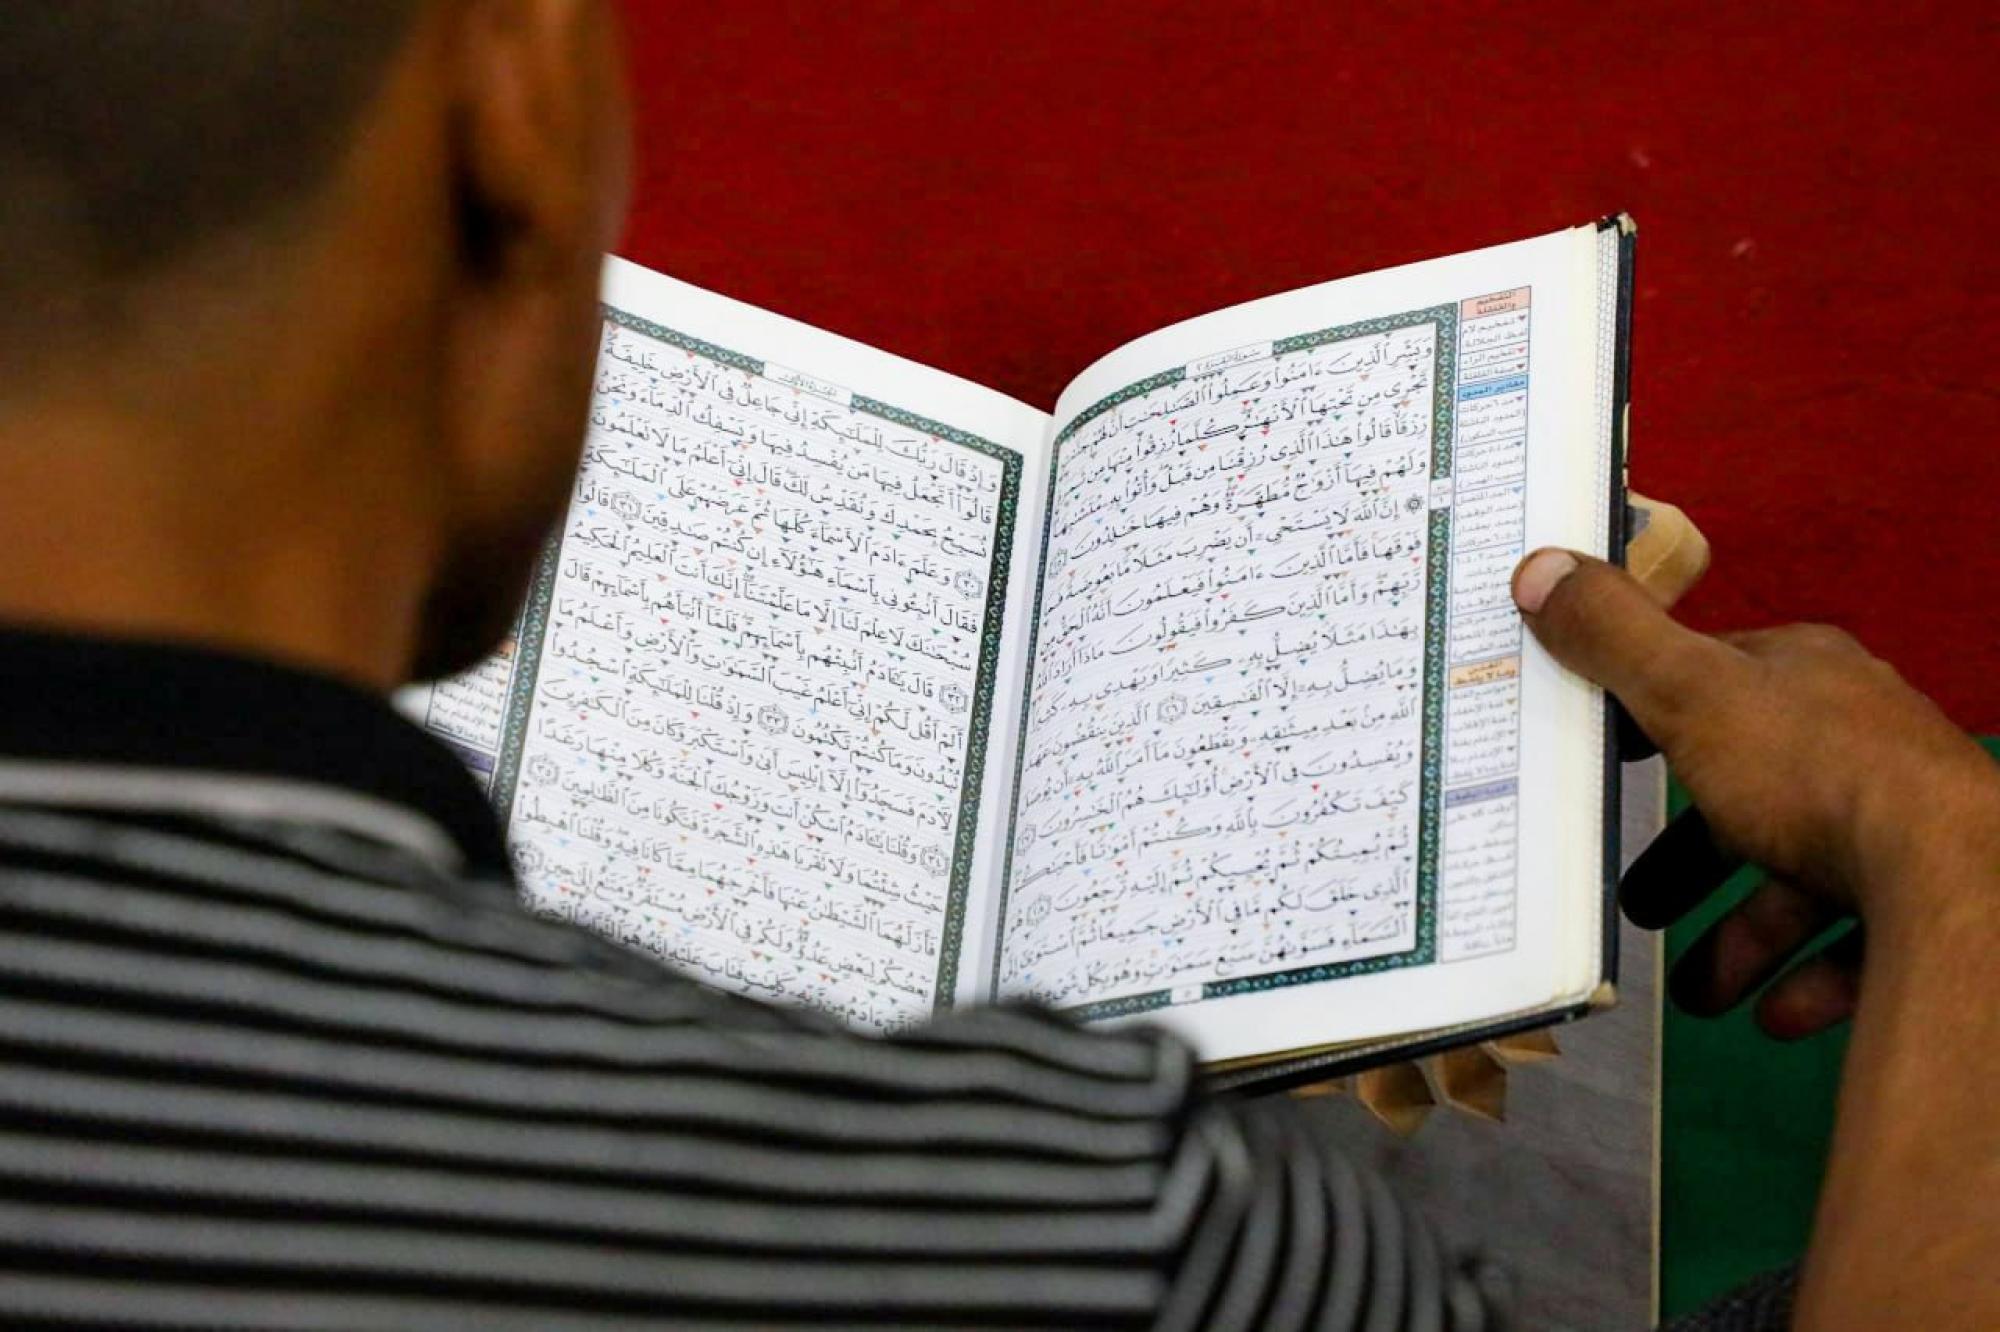 سُورَةُ البَقَرَةِ ٢
وَبَشِّرِ ٱلَّذِينَ ءَامَنُوا۟ وَعَمِلُوا۟ ٱلصَّٰلِحَٰتِ أَنَّ لَهُمْ
تَجْرِى مِن تَحْتِهَا ٱلْأَنْهَٰرُ كُلَّمَا رُزِقُوا۟ مِنْهَا مِن
رِّزْقًا قَالُوا۟ هَٰذَا ٱلَّذِى رُزِقْنَا مِن قَبْلُ وَأُتُوا۟ بِهِۦ مُتَشَٰبِهًا
وَلَهُمْ فِيهَآ أَزْوَٰجٌ مُّطَهَّرَةٌ وَهُمْ فِيهَا خَٰلِدُونَ ٢٥
۞ إِنَّ ٱللَّهَ لَا يَسْتَحْىِۦٓ أَن يَضْرِبَ مَثَلًا مَّا بَعُوضَةً فَمَا
فَوْقَهَا فَأَمَّا ٱلَّذِينَ ءَامَنُوا۟ فَيَعْلَمُونَ أَنَّهُ ٱلْحَقُّ مِن
رَّبِّهِمْ وَأَمَّا ٱلَّذِينَ كَفَرُوا۟ فَيَقُولُونَ مَاذَآ أَرَادَ ٱللَّهُ
بِهَٰذَا مَثَلًا يُضِلُّ بِهِۦ كَثِيرًا وَيَهْدِى بِهِۦ
وَمَا يُضِلُّ بِهِۦٓ إِلَّا ٱلْفَٰسِقِينَ ٢٦ ٱلَّذِينَ يَنقُضُونَ عَهْدَ
ٱللَّهِ مِنۢ بَعْدِ مِيثَٰقِهِۦ وَيَقْطَعُونَ مَآ أَمَرَ ٱللَّهُ بِهِۦٓ أَن يُوصَلَ
وَيُفْسِدُونَ فِى ٱلْأَرْضِ أُو۟لَٰٓئِكَ هُمُ ٱلْخَٰسِرُونَ ٢٧
كَيْفَ تَكْفُرُونَ بِٱللَّهِ وَكُنتُمْ أَمْوَٰتًا فَأَحْيَٰكُمْ
ثُمَّ يُمِيتُكُمْ ثُمَّ يُحْيِيكُمْ ثُمَّ إِلَيْهِ تُرْجَعُونَ ٢٨ هُوَ
ٱلَّذِى خَلَقَ لَكُم مَّا فِى ٱلْأَرْضِ جَمِيعًا ثُمَّ ٱسْتَوَىٰٓ إِلَى
ٱلسَّمَآءِ فَسَوَّىٰهُنَّ سَبْعَ سَمَٰوَٰتٍ وَهُوَ بِكُلِّ شَىْءٍ
٥
التفخيم
والقلقلة
تفخيم لام
لفظ الجلالة
تفخيم الراء
صفة القلقلة
مقادير المدود
الجزء الأول
وَإِذْ قَالَ رَبُّكَ لِلْمَلَٰٓئِكَةِ إِنِّى جَاعِلٌ فِى ٱلْأَرْضِ خَلِيفَةً
قَالُوٓا۟ أَتَجْعَلُ فِيهَا مَن يُفْسِدُ فِيهَا وَيَسْفِكُ ٱلدِّمَآءَ وَنَحْنُ
نُسَبِّحُ بِحَمْدِكَ وَنُقَدِّسُ لَكَ قَالَ إِنِّىٓ أَعْلَمُ مَا لَا تَعْلَمُونَ
٣٠ وَعَلَّمَ ءَادَمَ ٱلْأَسْمَآءَ كُلَّهَا ثُمَّ عَرَضَهُمْ عَلَى ٱلْمَلَٰٓئِكَةِ
فَقَالَ أَنۢبِـُٔونِى بِأَسْمَآءِ هَٰٓؤُلَآءِ إِن كُنتُمْ صَٰدِقِينَ ٣١ قَالُوا۟
سُبْحَٰنَكَ لَا عِلْمَ لَنَآ إِلَّا مَا عَلَّمْتَنَآ إِنَّكَ أَنتَ ٱلْعَلِيمُ ٱلْحَكِيمُ
٣٢ قَالَ يَٰٓـَٔادَمُ أَنۢبِئْهُم بِأَسْمَآئِهِمْ فَلَمَّآ أَنۢبَأَهُم بِأَسْمَآئِهِمْ قَالَ
أَلَمْ أَقُل لَّكُمْ إِنِّىٓ أَعْلَمُ غَيْبَ ٱلسَّمَٰوَٰتِ وَٱلْأَرْضِ وَأَعْلَمُ مَا
تُبْدُونَ وَمَا كُنتُمْ تَكْتُمُونَ ٣٣ وَإِذْ قُلْنَا لِلْمَلَٰٓئِكَةِ ٱسْجُدُوا۟
لِـَٔادَمَ فَسَجَدُوٓا۟ إِلَّآ إِبْلِيسَ أَبَىٰ وَٱسْتَكْبَرَ وَكَانَ مِنَ ٱلْكَٰفِرِينَ
٣٤ وَقُلْنَا يَٰٓـَٔادَمُ ٱسْكُنْ أَنتَ وَزَوْجُكَ ٱلْجَنَّةَ وَكُلَا مِنْهَا رَغَدًا
حَيْثُ شِئْتُمَا وَلَا تَقْرَبَا هَٰذِهِ ٱلشَّجَرَةَ فَتَكُونَا مِنَ ٱلظَّٰلِمِينَ ٣٥
فَأَزَلَّهُمَا ٱلشَّيْطَٰنُ عَنْهَا فَأَخْرَجَهُمَا مِمَّا كَانَا فِيهِ وَقُلْنَا ٱهْبِطُوا۟
بَعْضُكُمْ لِبَعْضٍ عَدُوٌّ وَلَكُمْ فِى ٱلْأَرْضِ مُسْتَقَرٌّ وَمَتَٰعٌ إِلَىٰ حِينٍ ٣٦
ءَادَمُ مِن رَّبِّهِۦ كَلِمَٰتٍ فَتَابَ عَلَيْهِ إِنَّهُۥ هُوَ ٱلتَّوَّابُ ٱلرَّحِيمُ